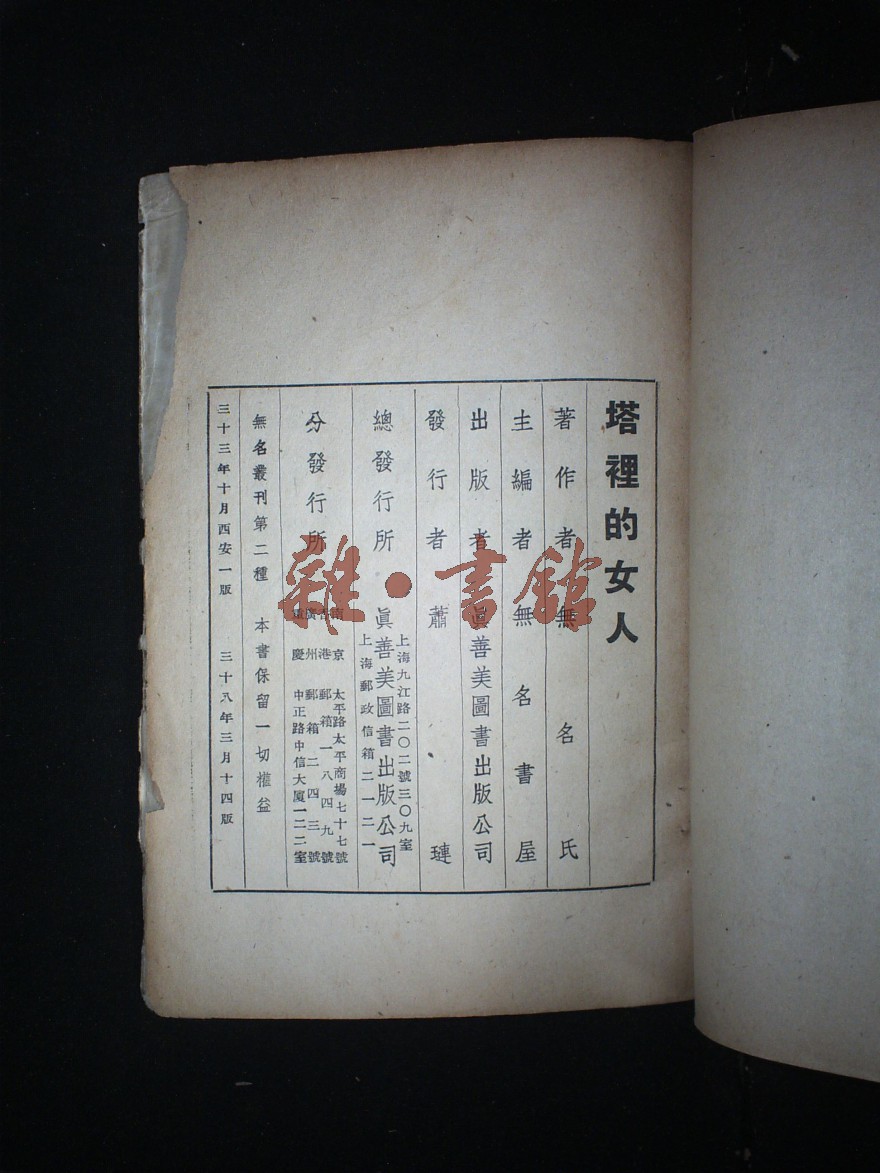 塔裡的女人
著作者 無名氏
主編者 無名書屋
出版者 眞善美圖書出版公司
發行者 蕭璉
總發行所 眞善美圖書出版公司
上海九江路二〇二號三〇九室
上海郵政信箱二一二一
分發行所
南京 太平路太平商場七十七號
香港 郵箱一八四九號
廣州 郵箱二四三號
重慶 中正路中信大厦一二二室
無名叢刊第二種 本書保留一切權益
三十三年十月西安一版 三十八年三月十四版
雜·書館